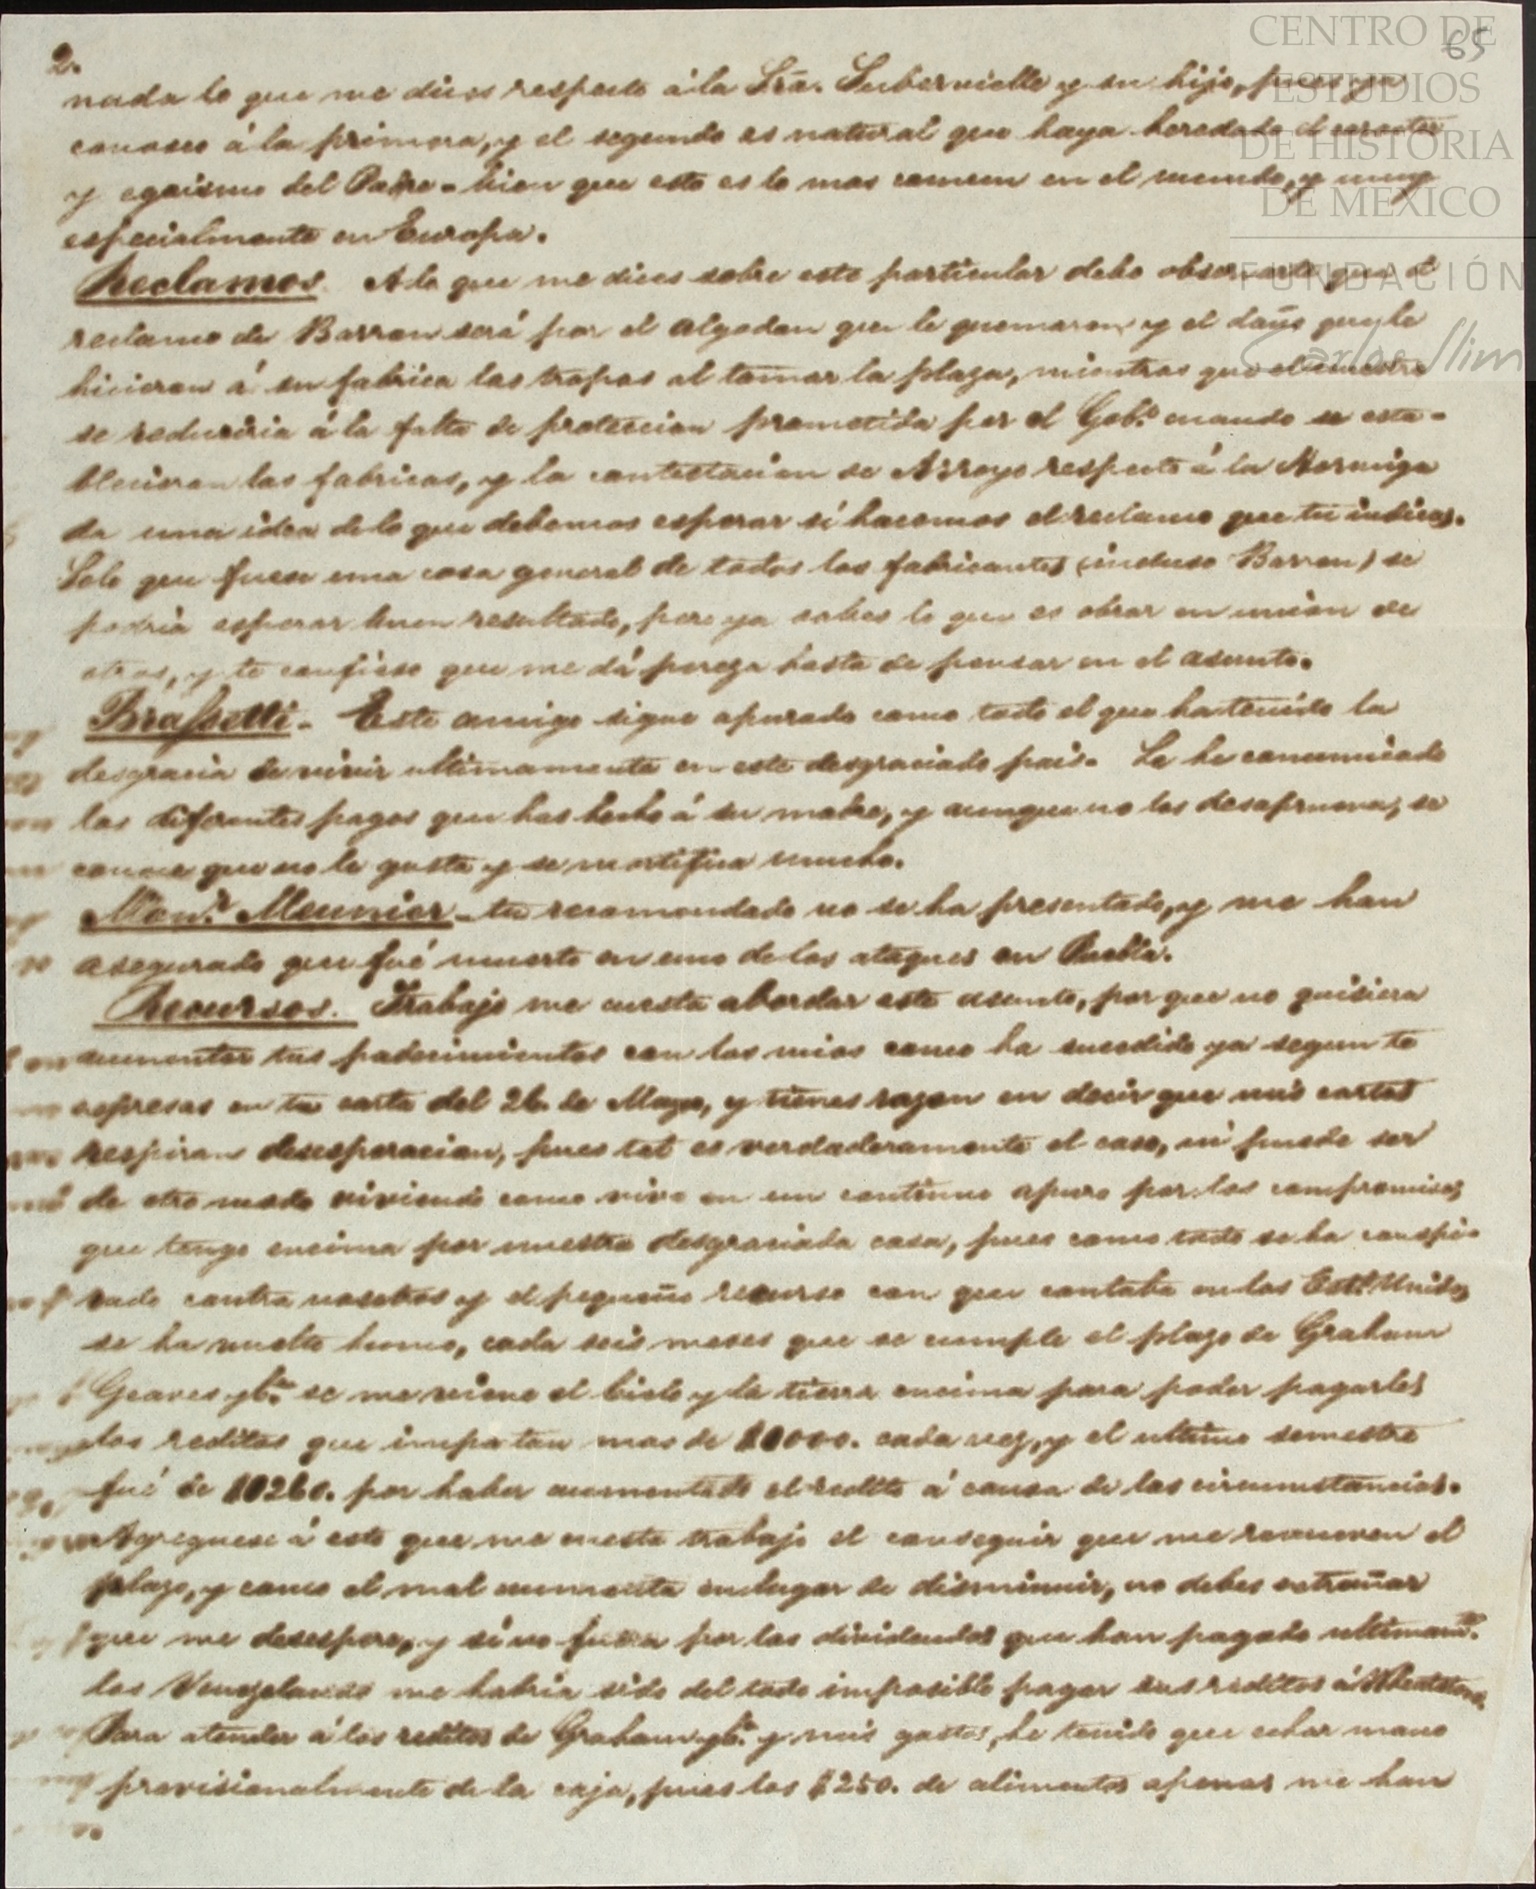 2.
65
CENTRO DE
ESTUDIOS
DE HISTORIA
DE MEXICO
FUNDACIÓN
Carlos Slim
nada lo que me dices respecto á la Sra. Subervielle y su hijo, pues ya
conosco á la primera, y el segundo es natural que haya heredado el caracter
y egoismo del Padre - bien que esto es lo mas comun en el mundo, y muy
especialmente en Europa.
Reclamos. A lo que me dices sobre este particular debo observarte que el
reclamo de Barron será por el algodon que le quemaron y el daño que le
hicieron á su fabrica las tropas al tomar la plaza, mientras que el nuestro
se reduciria á la falta de proteccion prometida por el Gobo. cuando se esta-
blecieron las fabricas, y la contestacion de Arroyo respecto á la Hormiga
da una idea de lo que debemos esperar si hacemos el reclamo que tu indicas.
Solo que fuese una cosa general de todos los fabricantes (incluso Barron) se
podria esperar buen resultado, pero ya sabes lo que es obrar en union de
otros, y te confieso que me dá pereza hasta de pensar en el asunto.
Brassetti - Este amigo sigue apurado como todo el que ha tenido la
desgracia de vivir ultimamente en este desgraciado pais. Le he comunicado
los diferentes pagos que has hecho á su madre, y aunque no los desaprueva, se
conoce que no le gusta y se mortifica mucho.
Monr. Meunier - tu recomendado no se ha presentado, y me han
asegurado que fué muerto en uno de los ataques en Puebla.
Recursos. Trabajo me cuesta abordar este asunto, por que no quisiera
aumentar tus padecimientos con los mios como ha sucedido ya segun te
espresas en tu carta del 26. de Mayo, y tienes razon en decir que mis cartas
respiran desesperacion, pues tal es verdaderamente el caso, ni puede ser
de otro modo viviendo como vivo en un continuo apuro por los compromisos
que tengo encima por nuestra desgraciada casa, pues como todo se ha conspi-
rado contra nosotros y el pequeño recurso con que contaba en los Ests. Unidos
se ha vuelto humo, cada seis meses que se cumple el plazo de Graham
Geaves y Ca. se me viene el Cielo y la tierra encima para poder pagarles
los reditos que importan mas de 10000. cada vez, y el ultimo semestre
fué de 10260. por haber aumentado el redito á causa de las circunstancias.
Agreguese á esto que me cuesta trabajo el conseguir que me renueven el
plazo, y como el mal aumenta en lugar de disminuir, no debes estrañar
que me desespere, y si no fuera por los dividendos que han pagado ultimamte.
los Venezolanos me habria sido del todo imposible pagar sus reditos á
Para atender á los reditos de Graham y Ca. y mis gastos, he tenido que echar mano
provisionalmente de la caja, pues los $250. de alimentos apenas me han